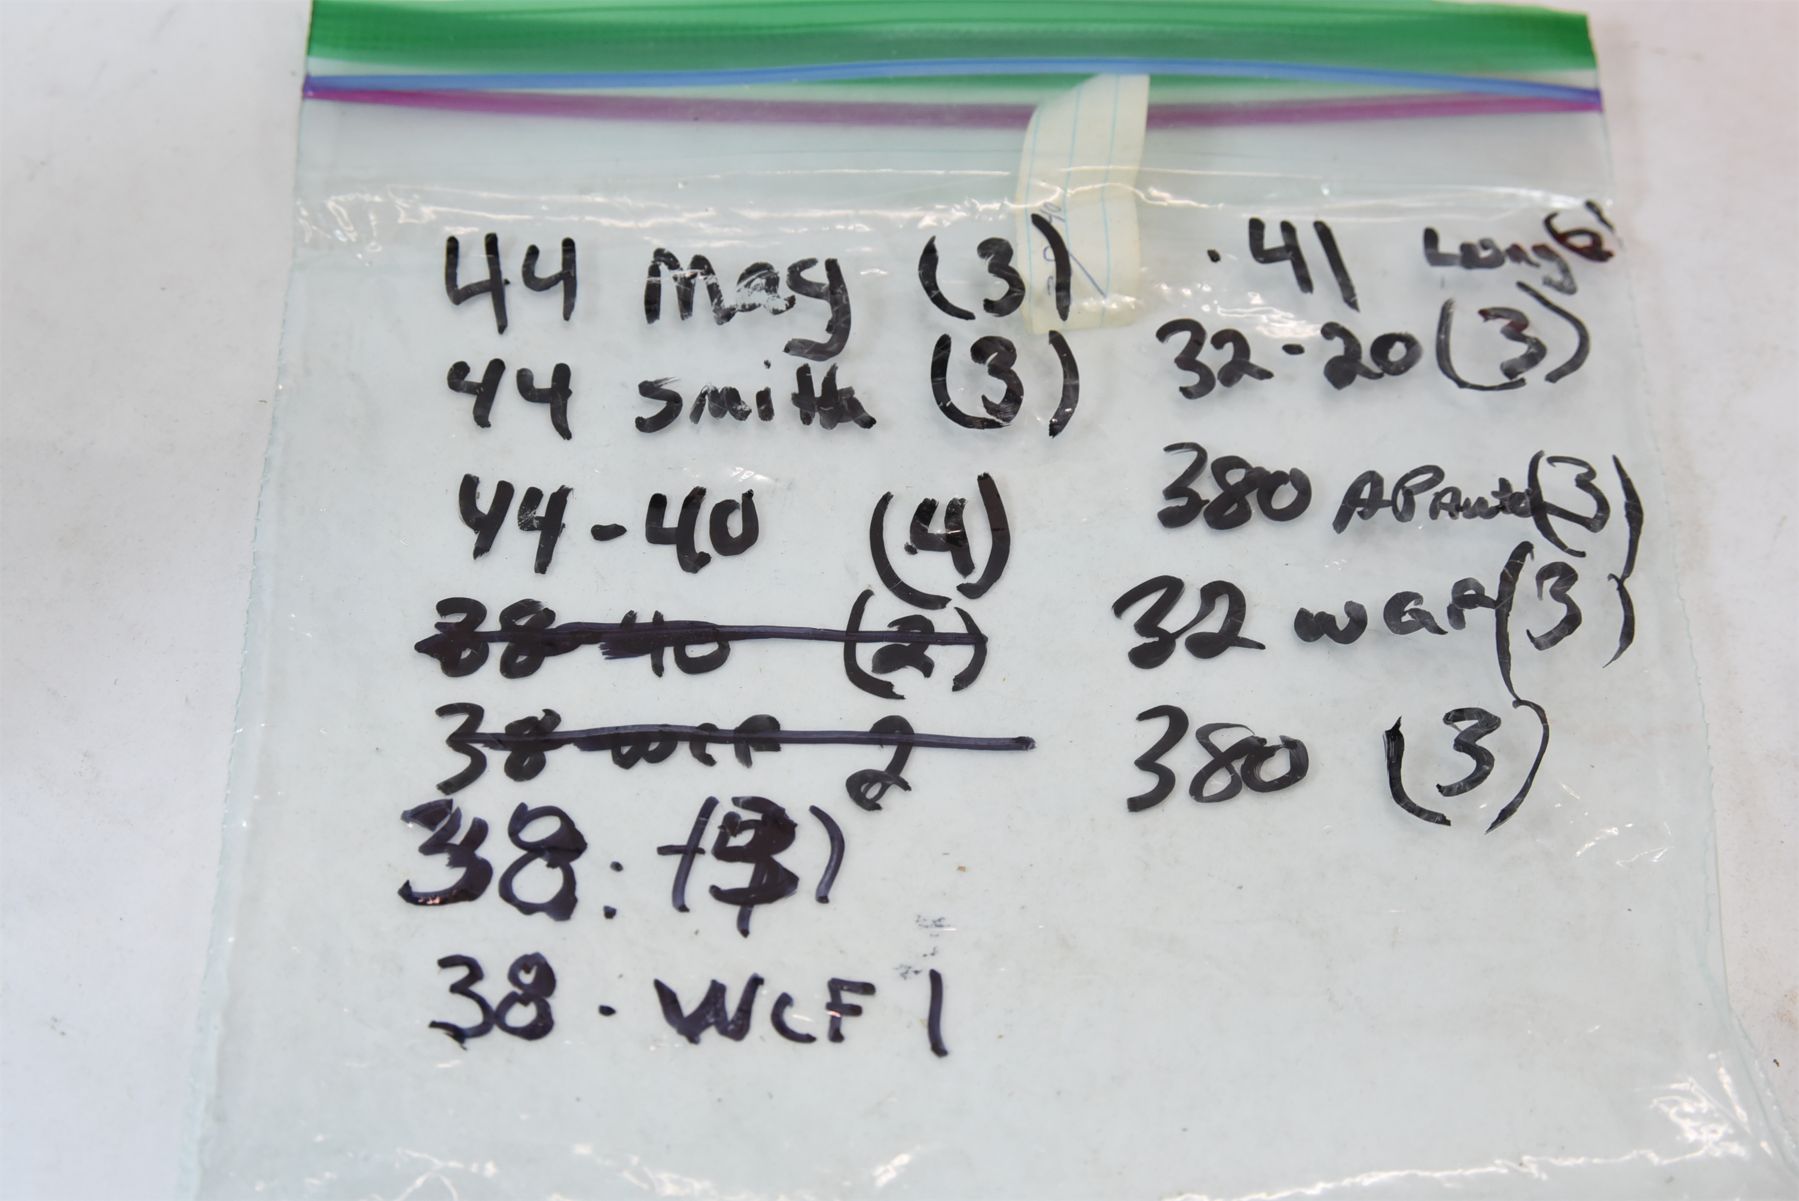 44 Mag (3)
44 Smith (3)
44-40 (4)
38-40 (2)
38 WCF 2
38:
38 - WCF 1
.41 Long
32-20 (3)
380 (3)
32 (3)
380 (3)